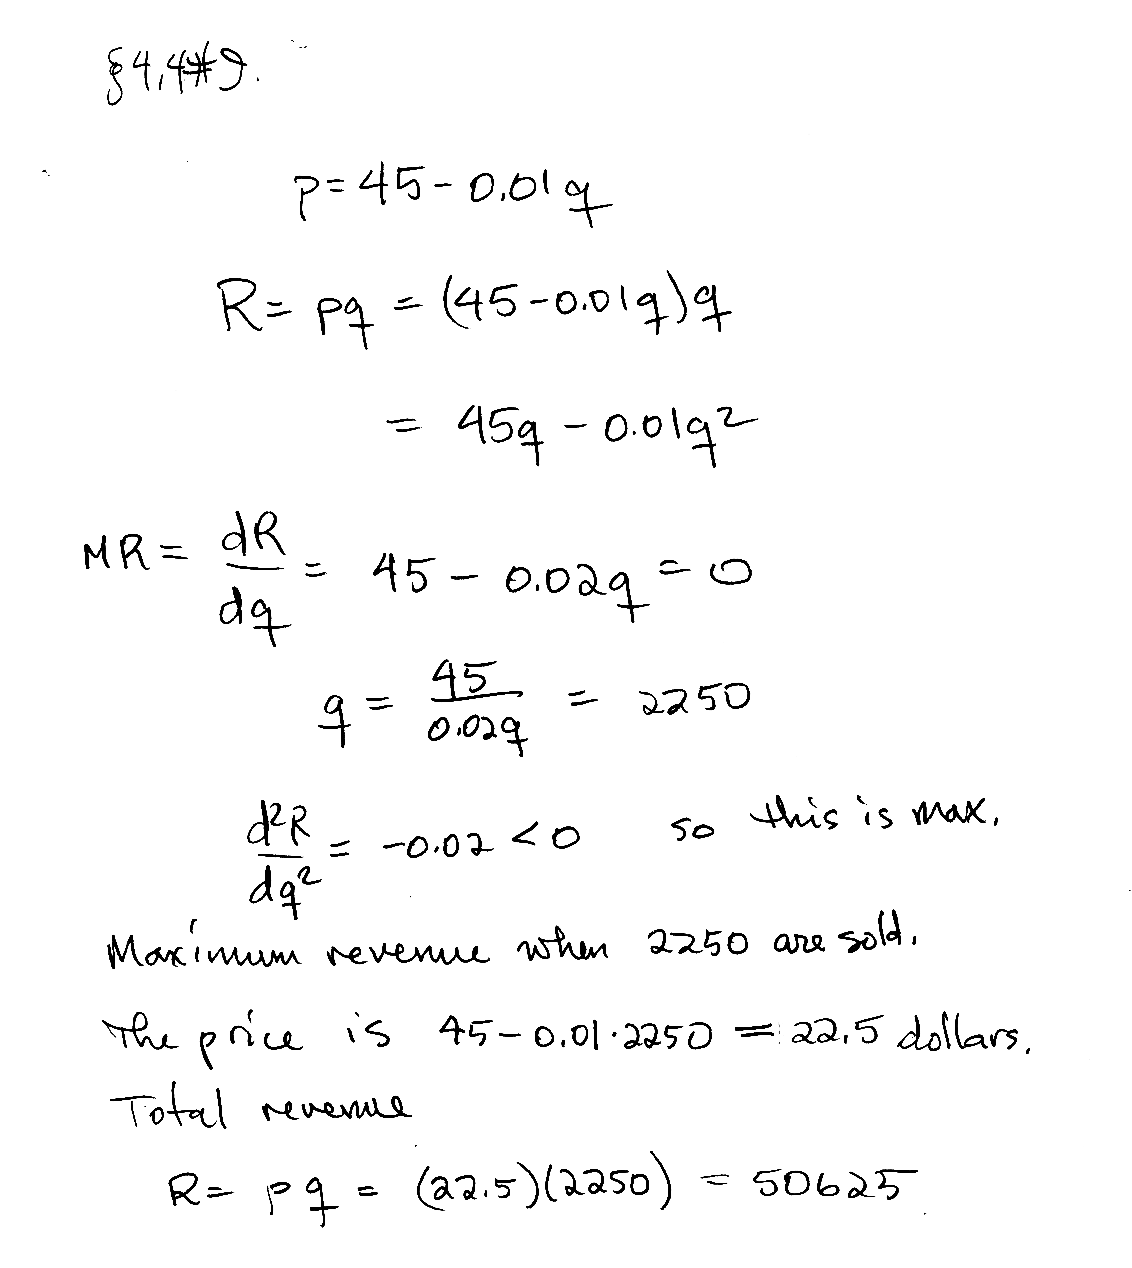 §4.4#9.
p=45-0.01q
R= pq = (45-0.01q)q
= 45q - 0.01q²
MR = dR/dq = 45 - 0.02q = 0
q = 45/0.02q = 2250
d²R/dq² = -0.02 < 0 so this is max.
Maximum revenue when 2250 are sold.
The price is 45-0.01·2250 = 22.5 dollars.
Total revenue
R= pq = (22.5)(2250) = 50625